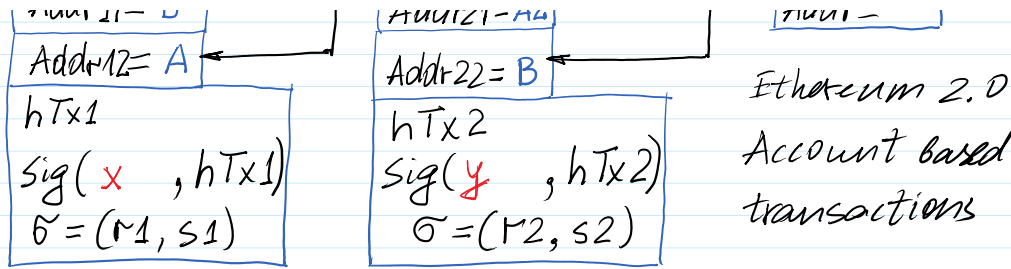 Addr12= A
hTx1
Sig( x , hTx1)
σ=(r1, s1)
Addr22= B
hTx2
Sig( y , hTx2)
σ=(r2, s2)
Ethereum 2.0
Account based
transactions